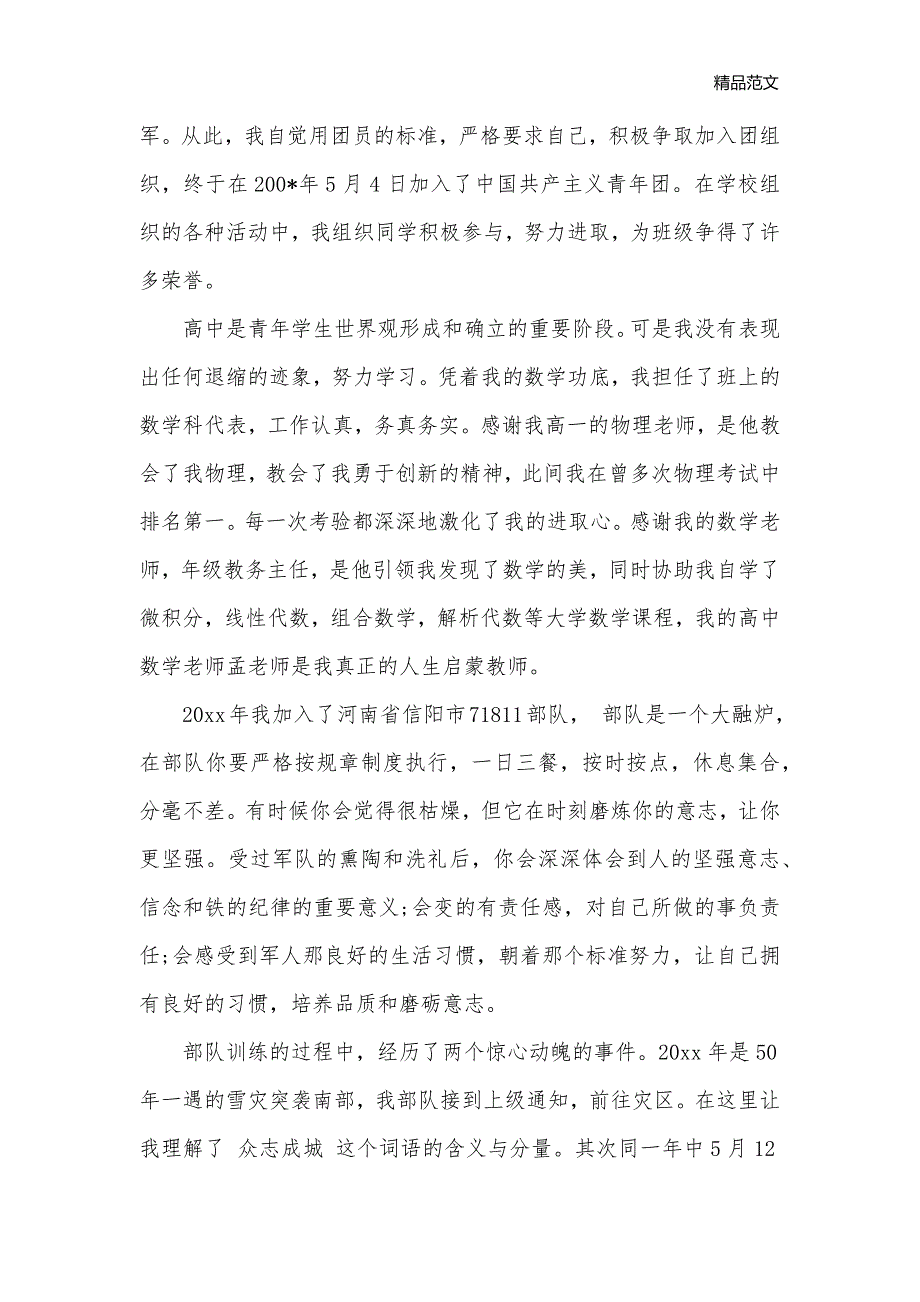 精品范文
军。从此，我自觉用团员的标准，严格要求自己，积极争取加入团组
织，终于在 200*年 5 月 4 日加入了中国共产主义青年团。在学校组
织的各种活动中，我组织同学积极参与，努力进取，为班级争得了许
多荣誉。
高中是青年学生世界观形成和确立的重要阶段。可是我没有表现
出任何退缩的迹象，努力学习。凭着我的数学功底，我担任了班上的
数学科代表，工作认真，务真务实。感谢我高一的物理老师，是他教
会了我物理，教会了我勇于创新的精神，此间我在曾多次物理考试中
排名第一。每一次考验都深深地激化了我的进取心。感谢我的数学老
师，年级教务主任，是他引领我发现了数学的美，同时协助我自学了
微积分，线性代数，组合数学，解析代数等大学数学课程，我的高中
数学老师孟老师是我真正的人生启蒙教师。
20xx 年我加入了河南省信阳市 71811 部队， 部队是一个大融炉，
在部队你要严格按规章制度执行，一日三餐，按时按点，休息集合，
分毫不差。有时候你会觉得很枯燥，但它在时刻磨炼你的意志，让你
更坚强。受过军队的熏陶和洗礼后，你会深深体会到人的坚强意志、
信念和铁的纪律的重要意义;会变的有责任感，对自己所做的事负责
任;会感受到军人那良好的生活习惯，朝着那个标准努力，让自己拥
有良好的习惯，培养品质和磨砺意志。
部队训练的过程中，经历了两个惊心动魄的事件。20xx 年是 50
年一遇的雪灾突袭南部，我部队接到上级通知，前往灾区。在这里让
我理解了 众志成城 这个词语的含义与分量。其次同一年中 5 月 12